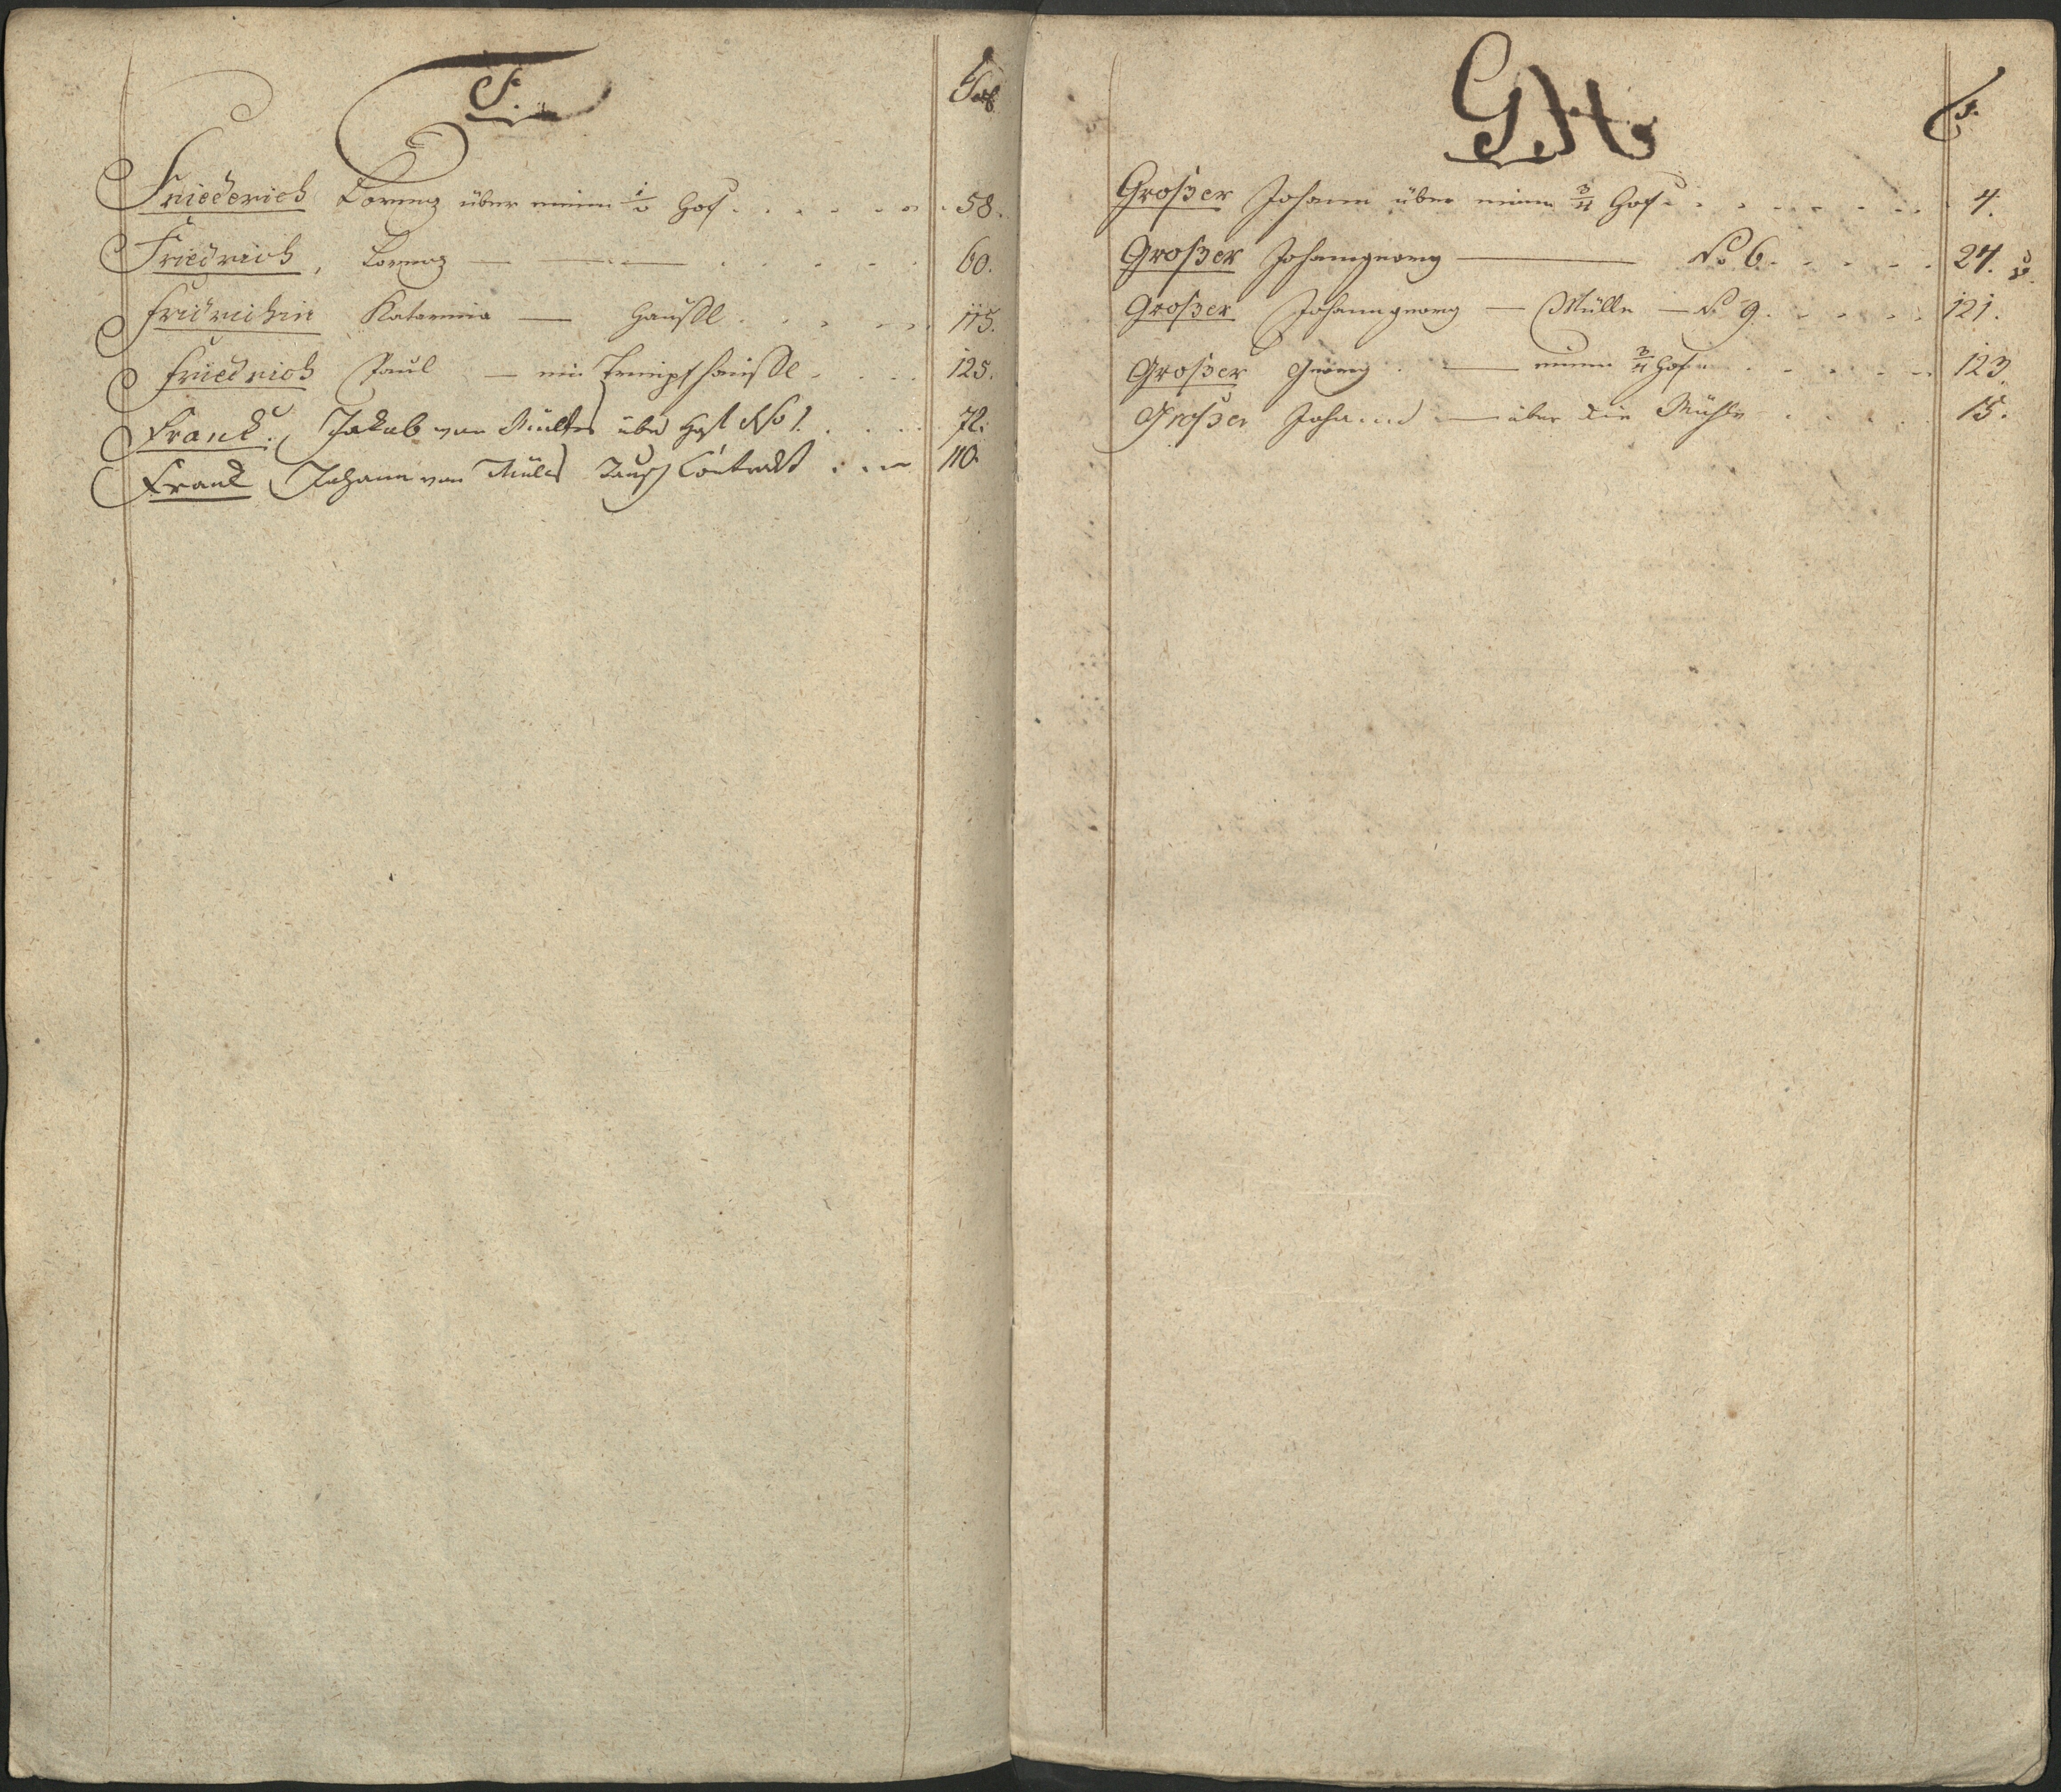 F.
Fol
Friederich Lorenz über einen 1/2 Hof . . . . . . . 58.
Friedrich, Lorenz — — — . . . . . . 60.
Fridrichin Katarina — Hausl . . . . . 115.
Friedrich Paul — ein hausl . . . . 125.
Frank. Jakob von über No 1. . . . . 72.
Frank Johann von Tausch Contrakt . . . 110
G. H.
F.
Großer Johann über einen 3/4 Hof . . . . . . . . . 4.
Großer Johanngeorg — No 6. . . . . . 24.
Großer Johanngeorg — Mülle — No 9. . . . . . 121.
Großer Georg — einen 3/4 Hof . . . . . . . 123.
Großer Johann — über die Mühle . . . . 15.